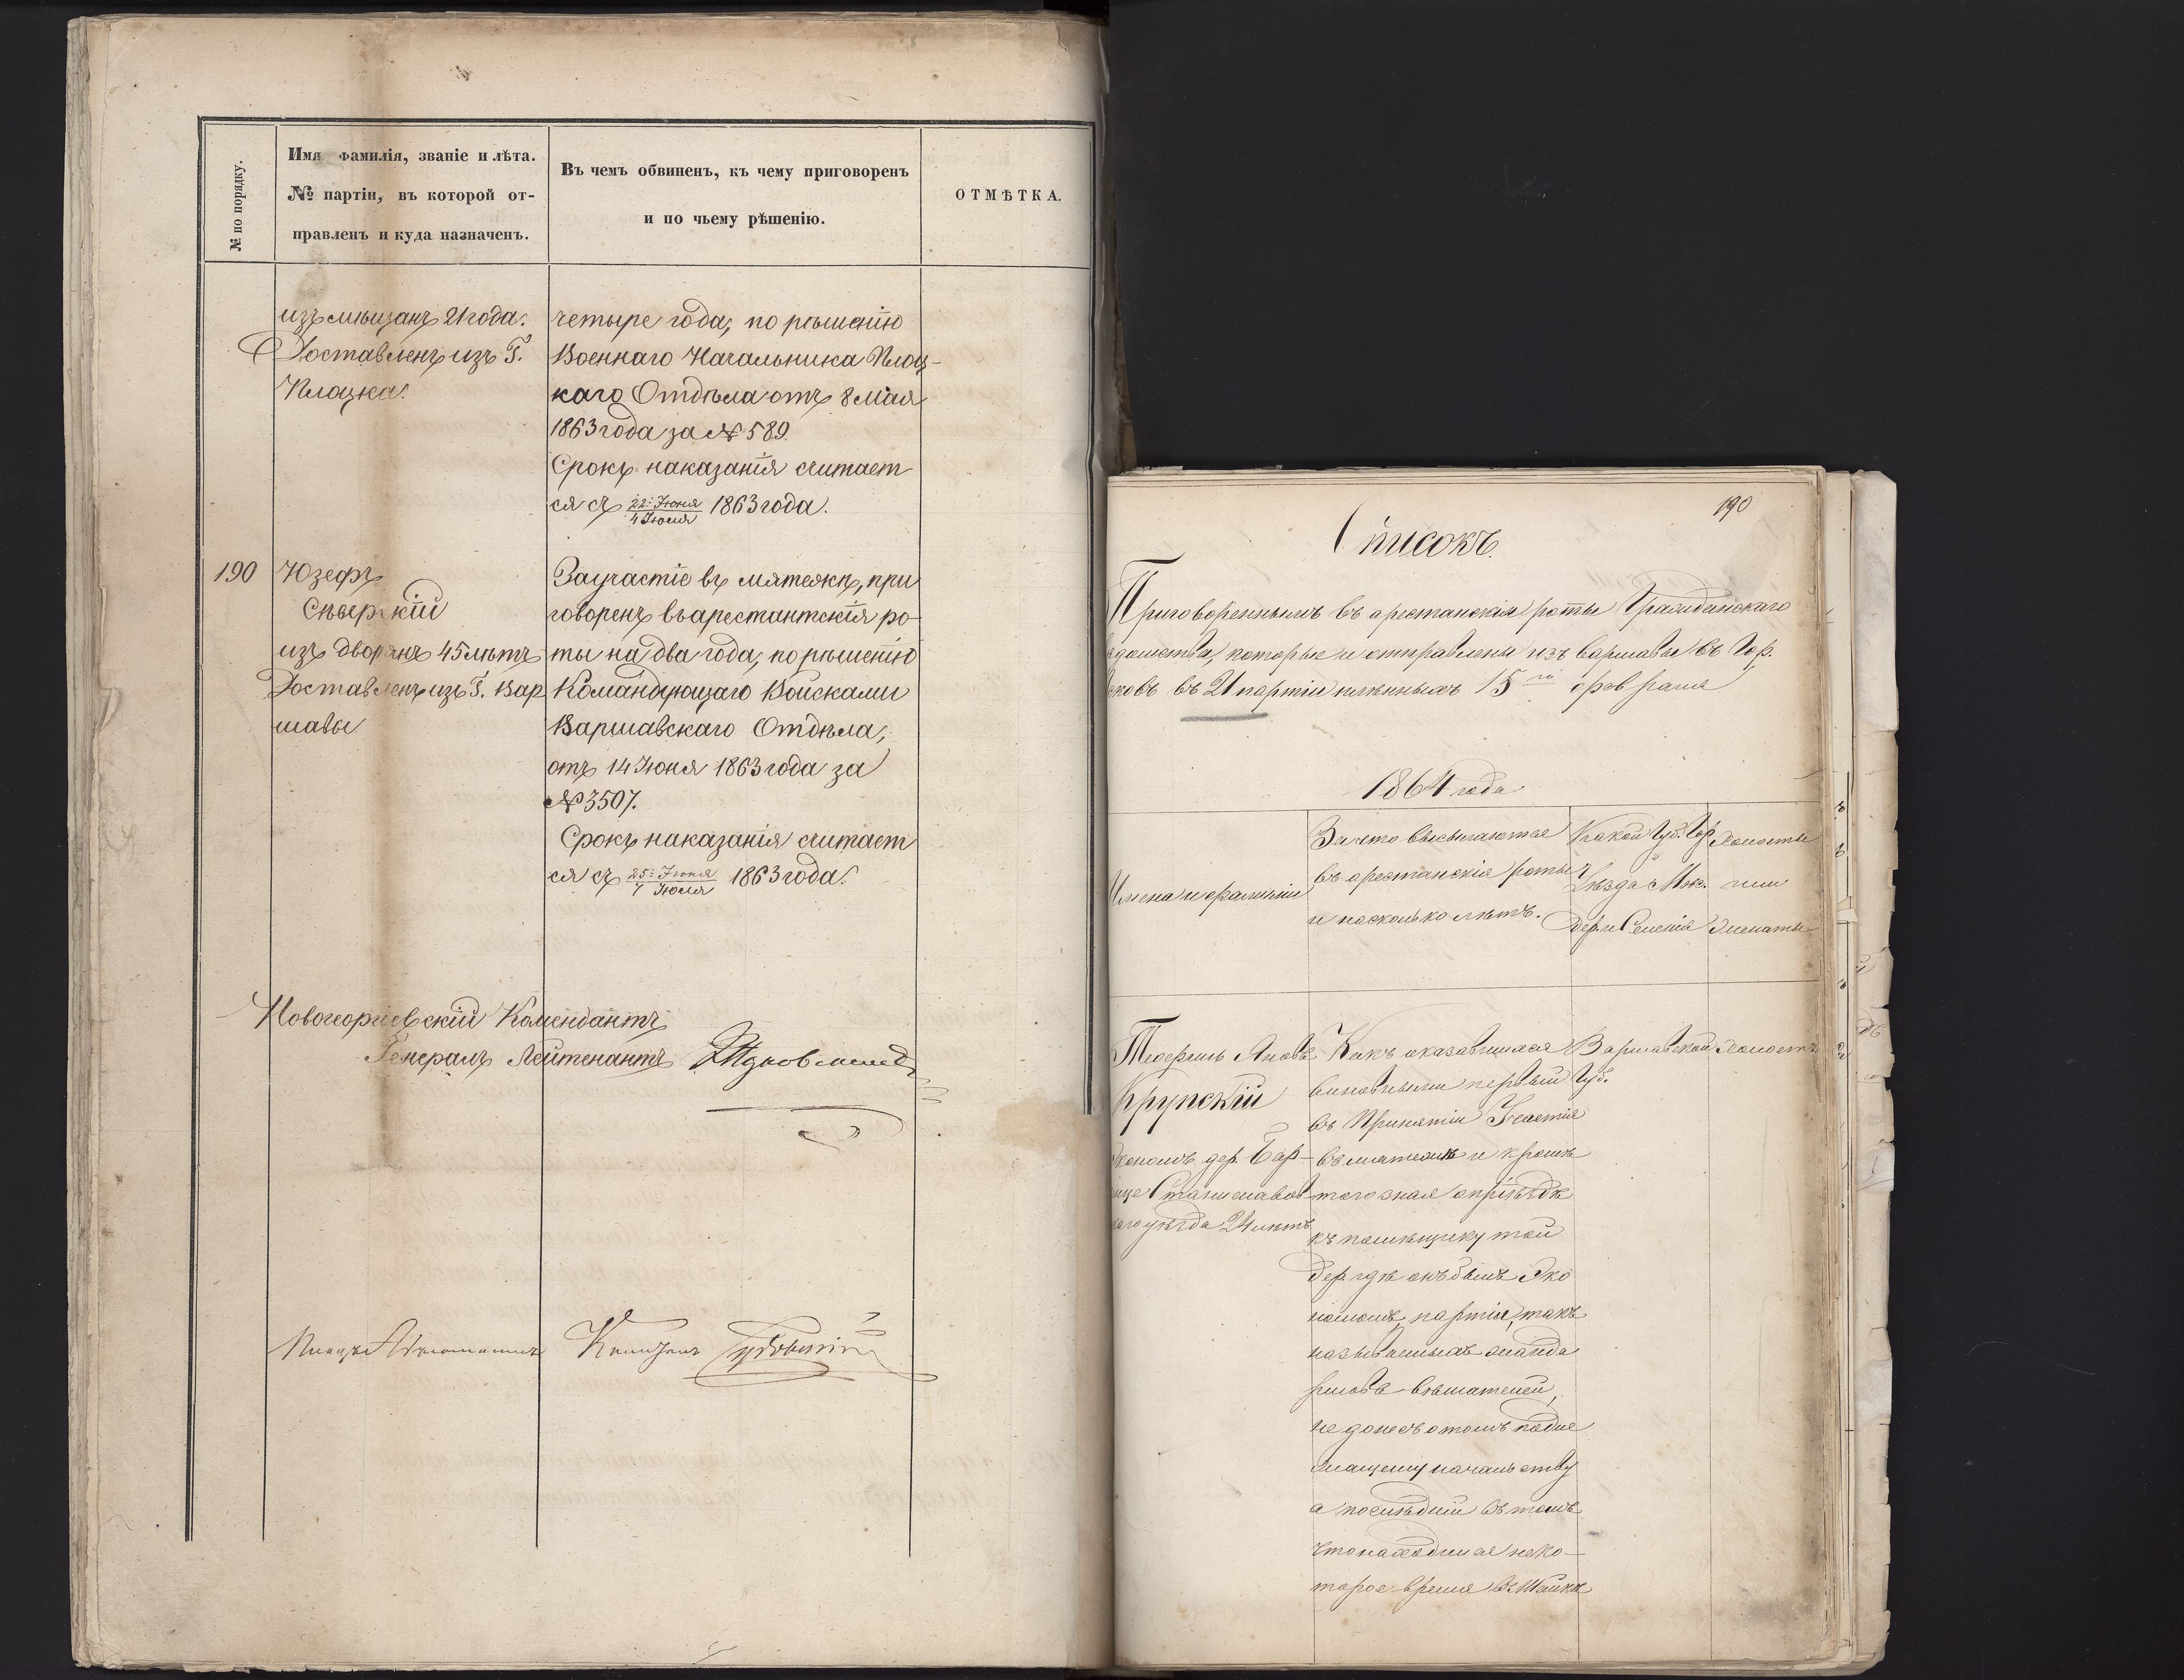 № по порядку.
Имя фамилія, званіе и лѣта.
№ партіи, въ которой от-
правленъ и куда назначенъ.
Въ чемъ обвиненъ, къ чему приговоренъ
и по чьему рѣшенію.
ОТМѢТКА.
изъ мѣщанъ 21 года.
Доставленъ изъ Г.
Плоцка.
четыре года, по рѣшенію
Военнаго Начальника Плоц-
каго Отдѣла отъ 8 Мая
1863 года за № 589.
Срокъ наказанія считает
ся съ 22: Іюня/4 Іюля 1863 года.
190
Юзефъ
Сѣверскій
изъ дворянъ 45 лѣтъ
Доставленъ изъ Г. Вар
шавы
За участіе въ мятежѣ, при
говоренъ въ арестантскія ро-
ты на два года, по рѣшенію
Командующаго Войсками
Варшавскаго Отдѣла,
отъ 14 Іюня 1863 года за
№ 3507.
Срокъ наказанія считает
ся съ 25: Іюня/7 Іюля 1863 года.
Новогеоргіевскій Комендантъ
Генералъ Лейтенантъ
Плацъ Адъютантъ
190
Списокъ.
Приговореннымъ въ арестанскія роты Гражданскаго
вдомства, которые и отправлены изъ Варшавы въ Гор.
сковъ въ 21 партіи плѣнныхъ 15го февраля
1864 года
Имена и фамиліи
За что высылаются
въ арестанскія роты
и насколько лѣтъ.
Какой Губ. Гор.
Уѣзда Мѣс.
Дер. и Селенія
Холосты
или
Женаты
Теофиль Яновъ
Крупскій
Экономъ дер. Бар-
ще Станиславов
каго уѣзда 24 лѣтъ
Какъ оказавшихся
виновными первый
въ Принятіи Участія
въ мятежѣ и кромѣ
того зная о пріѣздѣ
къ помѣщику той
дер. гдѣ онъ былъ Эко
номомъ, партіи, такъ
называемыхъ жанда
рмовъ вѣшателей,
не донесъ о томъ подле
жащему начальству
а послѣдній въ томъ
что находился неко-
торое время въ Шайкѣ
Варшавской
Губ.
Холостъ